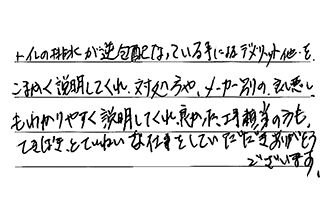 トイレの排水が逆勾配になっている事によるデメリット他を
こまかく説明してくれ、対処方や、メーカー別の良し悪し
もわかりやすく説明してくれ良かった、工事担当の方も、
てきぱきとていねいな仕事をしていただきありがとう
ございます。